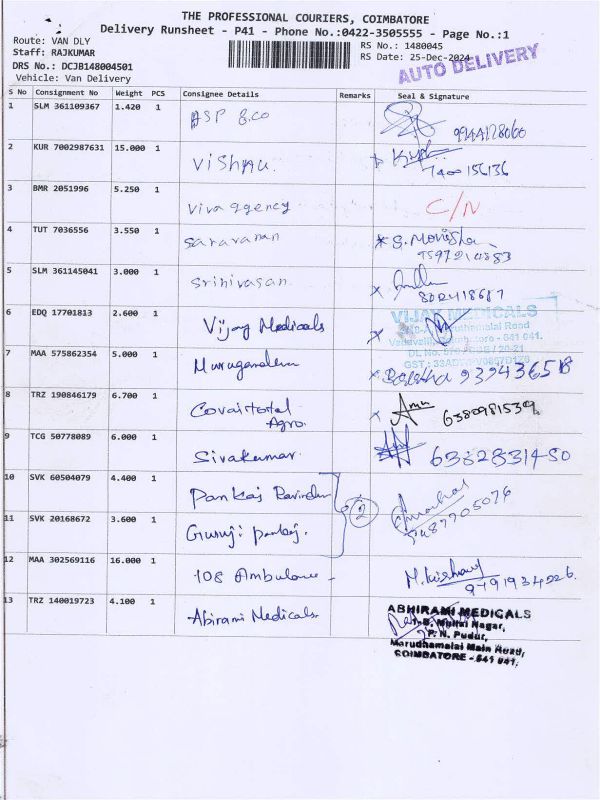 THE PROFESSIONAL COURIERS, COIMBATORE
Delivery Runsheet - P41 - Phone No.:0422-3505555 - Page No.:1
Route: VAN DLY
RS No.: 1480045
Staff: RAJKUMAR
RS Date: 25-Dec-2024
AUTO DELIVERY
DRS No.: DCJB148004501
Vehicle: Van Delivery
S No Consignment No Weight PCS Consignee Details Remarks Seal & Signature
1 SLM 361109367 1.420 1 ASP & CO 9944128060
2 KUR 7002987631 15.000 1 Vishnu. 7400156136
3 BMR 2051996 5.250 1 Viva agency C/N
4 TUT 7036556 3.550 1 Saravanan S. Monisha
5 SLM 361145041 3.000 1 Srinivasan 802418687
6 EDQ 17701813 2.600 1 Vijay Medicals
VIJAY MEDICALS
7 MAA 575862354 5.000 1
8 TRZ 190846179 6.700 1 Covai total Agro. 6380981539
9 TCG 50778089 6.000 1 Sivakumar. 6382831450
10 SVK 60504079 4.400 1 Pankaj Ravindra
2
11 SVK 20168672 3.600 1 Guruji pankaj.
12 MAA 302569116 16.000 1 108 Ambulance - 9791934226.
13 TRZ 140019723 4.100 1 Abirami Medicals.
ABHIRAMI MEDICALS
P. N. Pudur,
Marudhamalai Main Road,
COIMBATORE - 641 041.